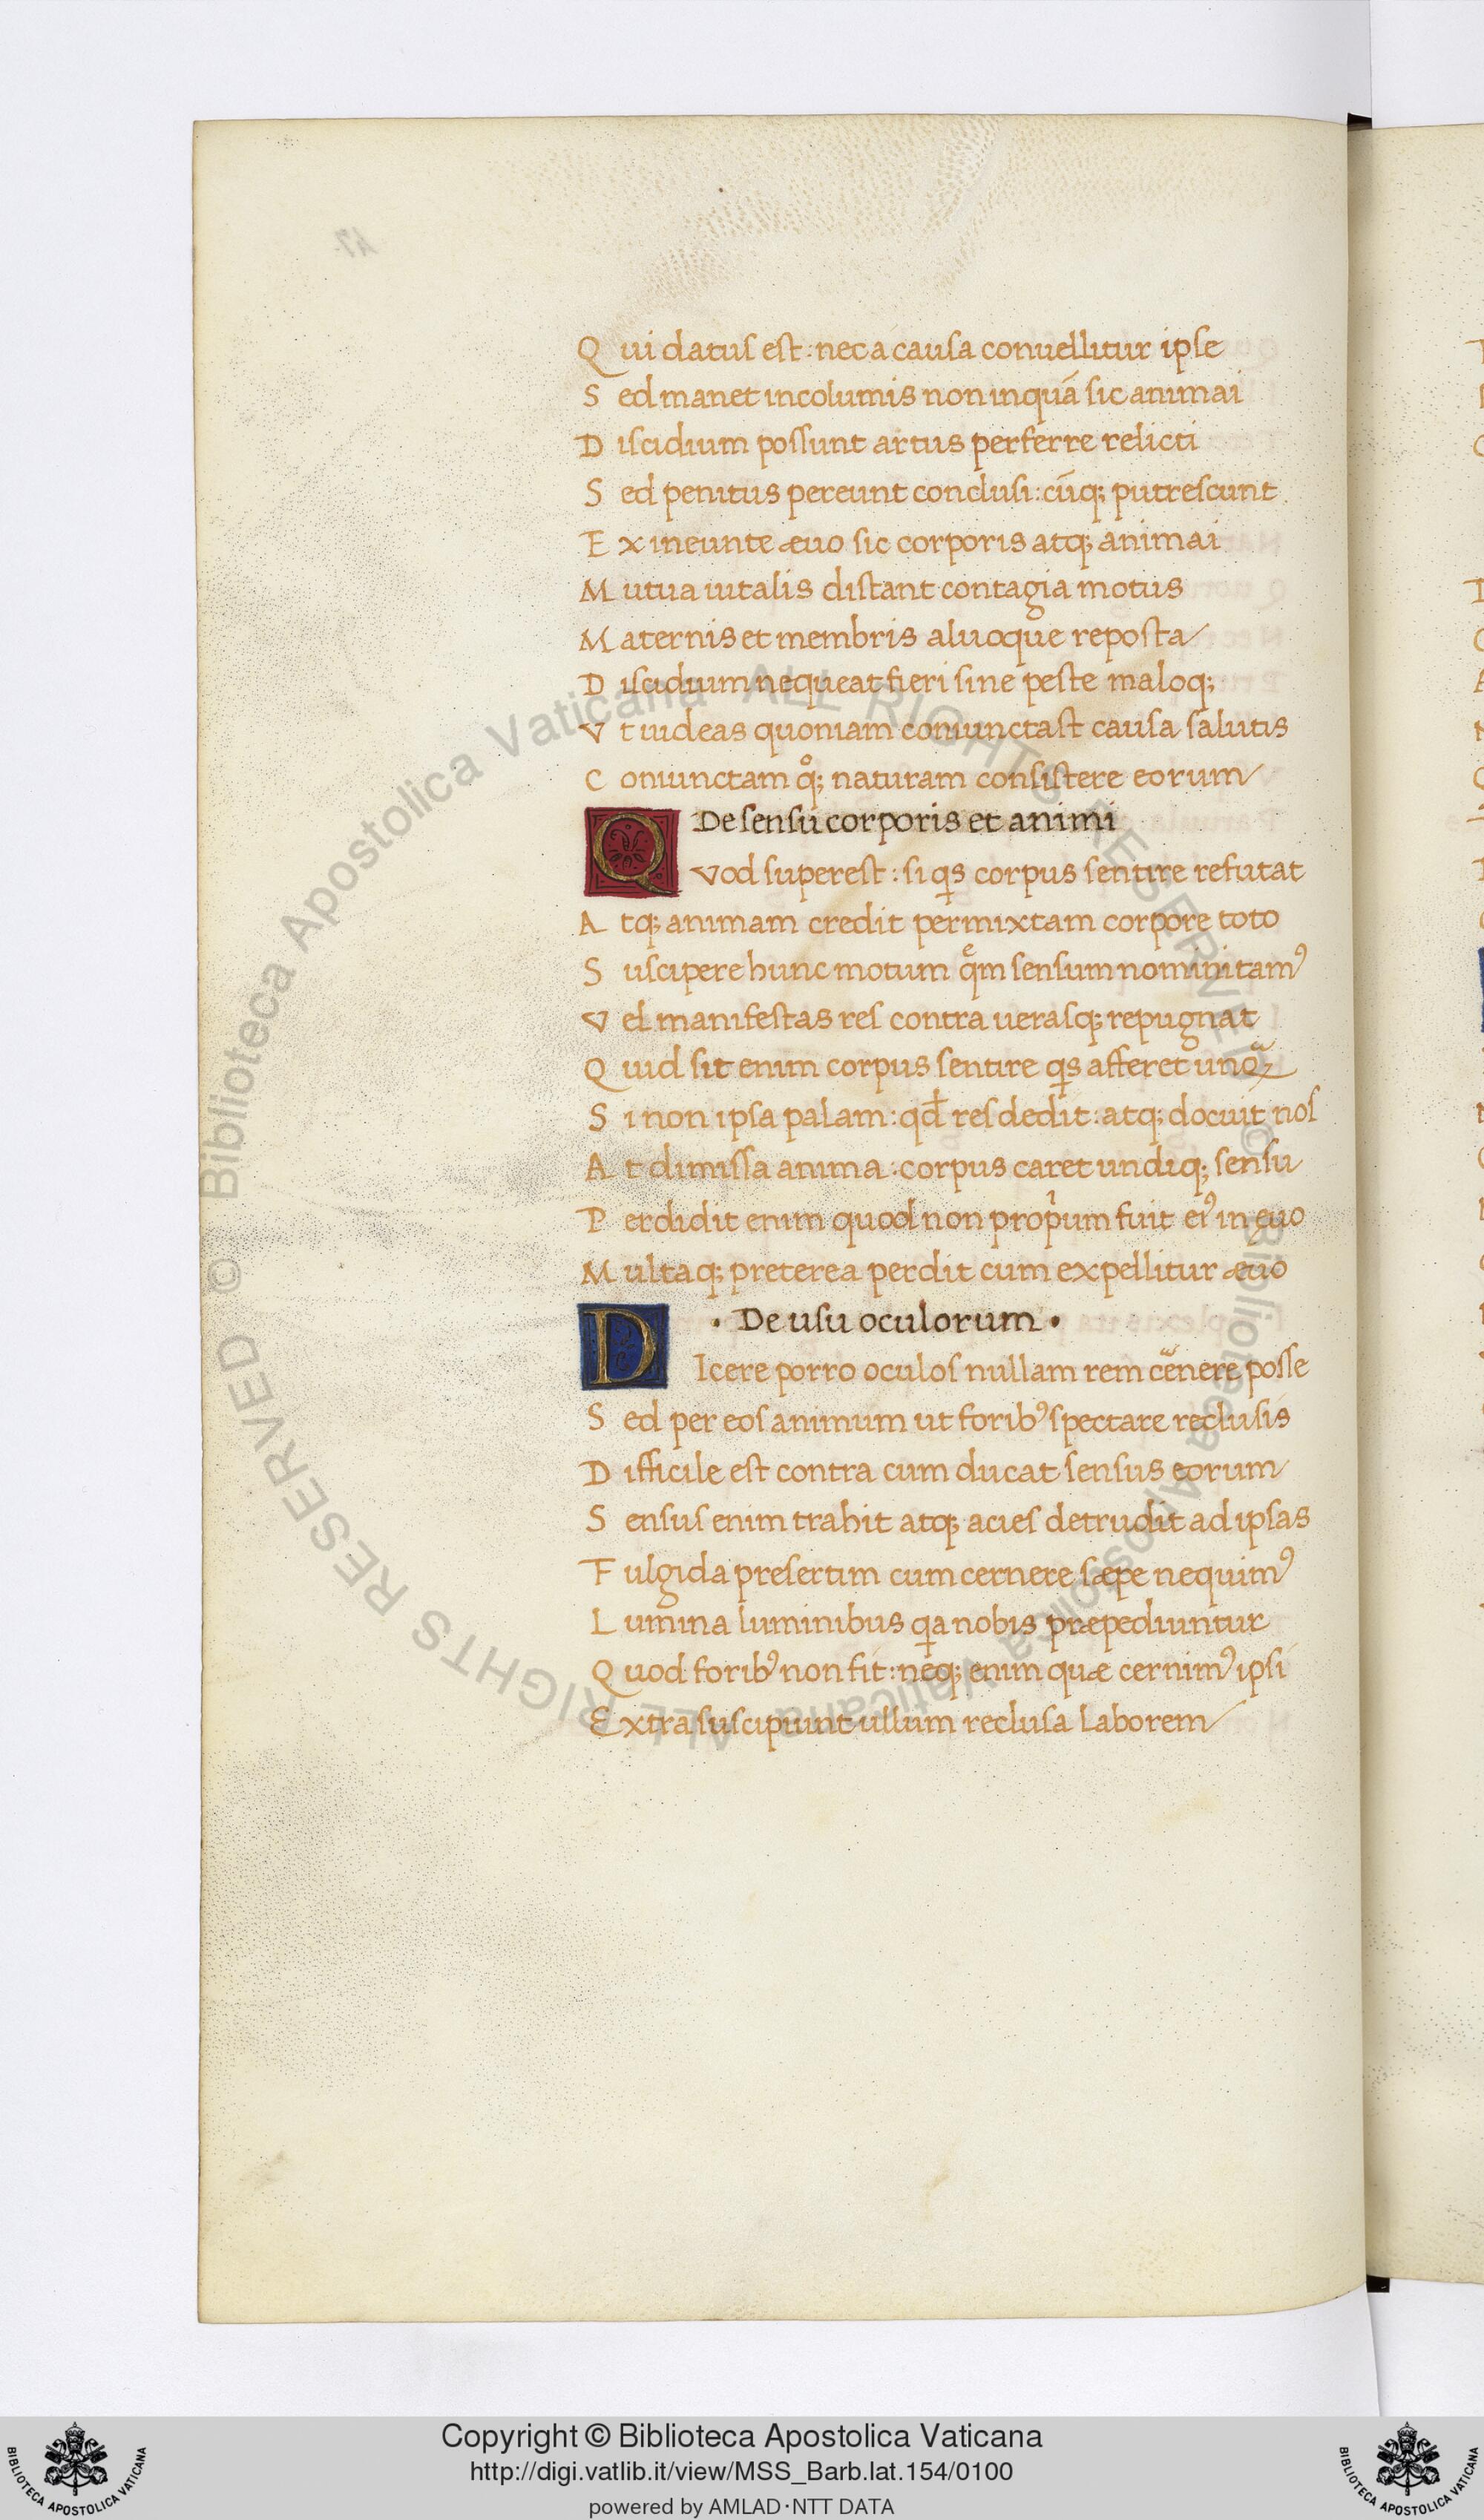 Qui datus est: nec a causa conuellitur ipse
Sed manet incolumis non inquã sic animai
Discidium possunt artus perferre relicti
Sed penitus pereunt conclusi: cũq; putrescunt
Ex ineunte æuo sic corporis atq; animai
Mutua uitalis distant contagia motus
Maternis et membris aluoque reposta
Discidium nequeat fieri sine peste maloq;
Vt uideas quoniam coniunctast causa salutis
Coniunctam qͦ; naturam consistere eorum
De sensu corporis et animi
QVod superest: si qs corpus sentire refutat
Atq; animam credit permixtam corpore toto
Suscipere hunc motum qͤm sensum nominitamꝰ
Vel manifestas res contra uerasq; repugnat
Quid sit enim corpus sentire qs afferet unqͣ
Si non ipsa palam: qđ res dedit: atq; docuit nos
At dimissa anima: corpus caret undiq; sensu
Perdidit enim quod non propͥum fuit eiꝰ in ęuo
Multaq; preterea perdit cum expellitur æuo
• De usu oculorum •
DIcere porro oculos nullam rem cẽnere posse
Sed per eos animum ut foribꝰ spectare reclusis
Difficile est contra cum ducat sensus eorum
Sensus enim trahit atq; acies detrudit ad ipsas
Fulgida presertim cum cernere sæpe nequimꝰ
Lumina luminibus qa nobis præpediuntur
Quod foribꝰ non fit: neq; enim quæ cernimꝰ ipsi
Extra suscipiunt ullum reclusa laborem
© Biblioteca Apostolica Vaticana ALL RIGHTS RESERVED © Biblioteca Apostolica Vaticana ALL RIGHTS RESERVED
Copyright © Biblioteca Apostolica Vaticana
http://digi.vatlib.it/view/MSS_Barb.lat.154/0100
powered by AMLAD·NTT DATA
BIBLIOTECA APOSTOLICA VATICANA
BIBLIOTECA APOSTOLICA VATICANA